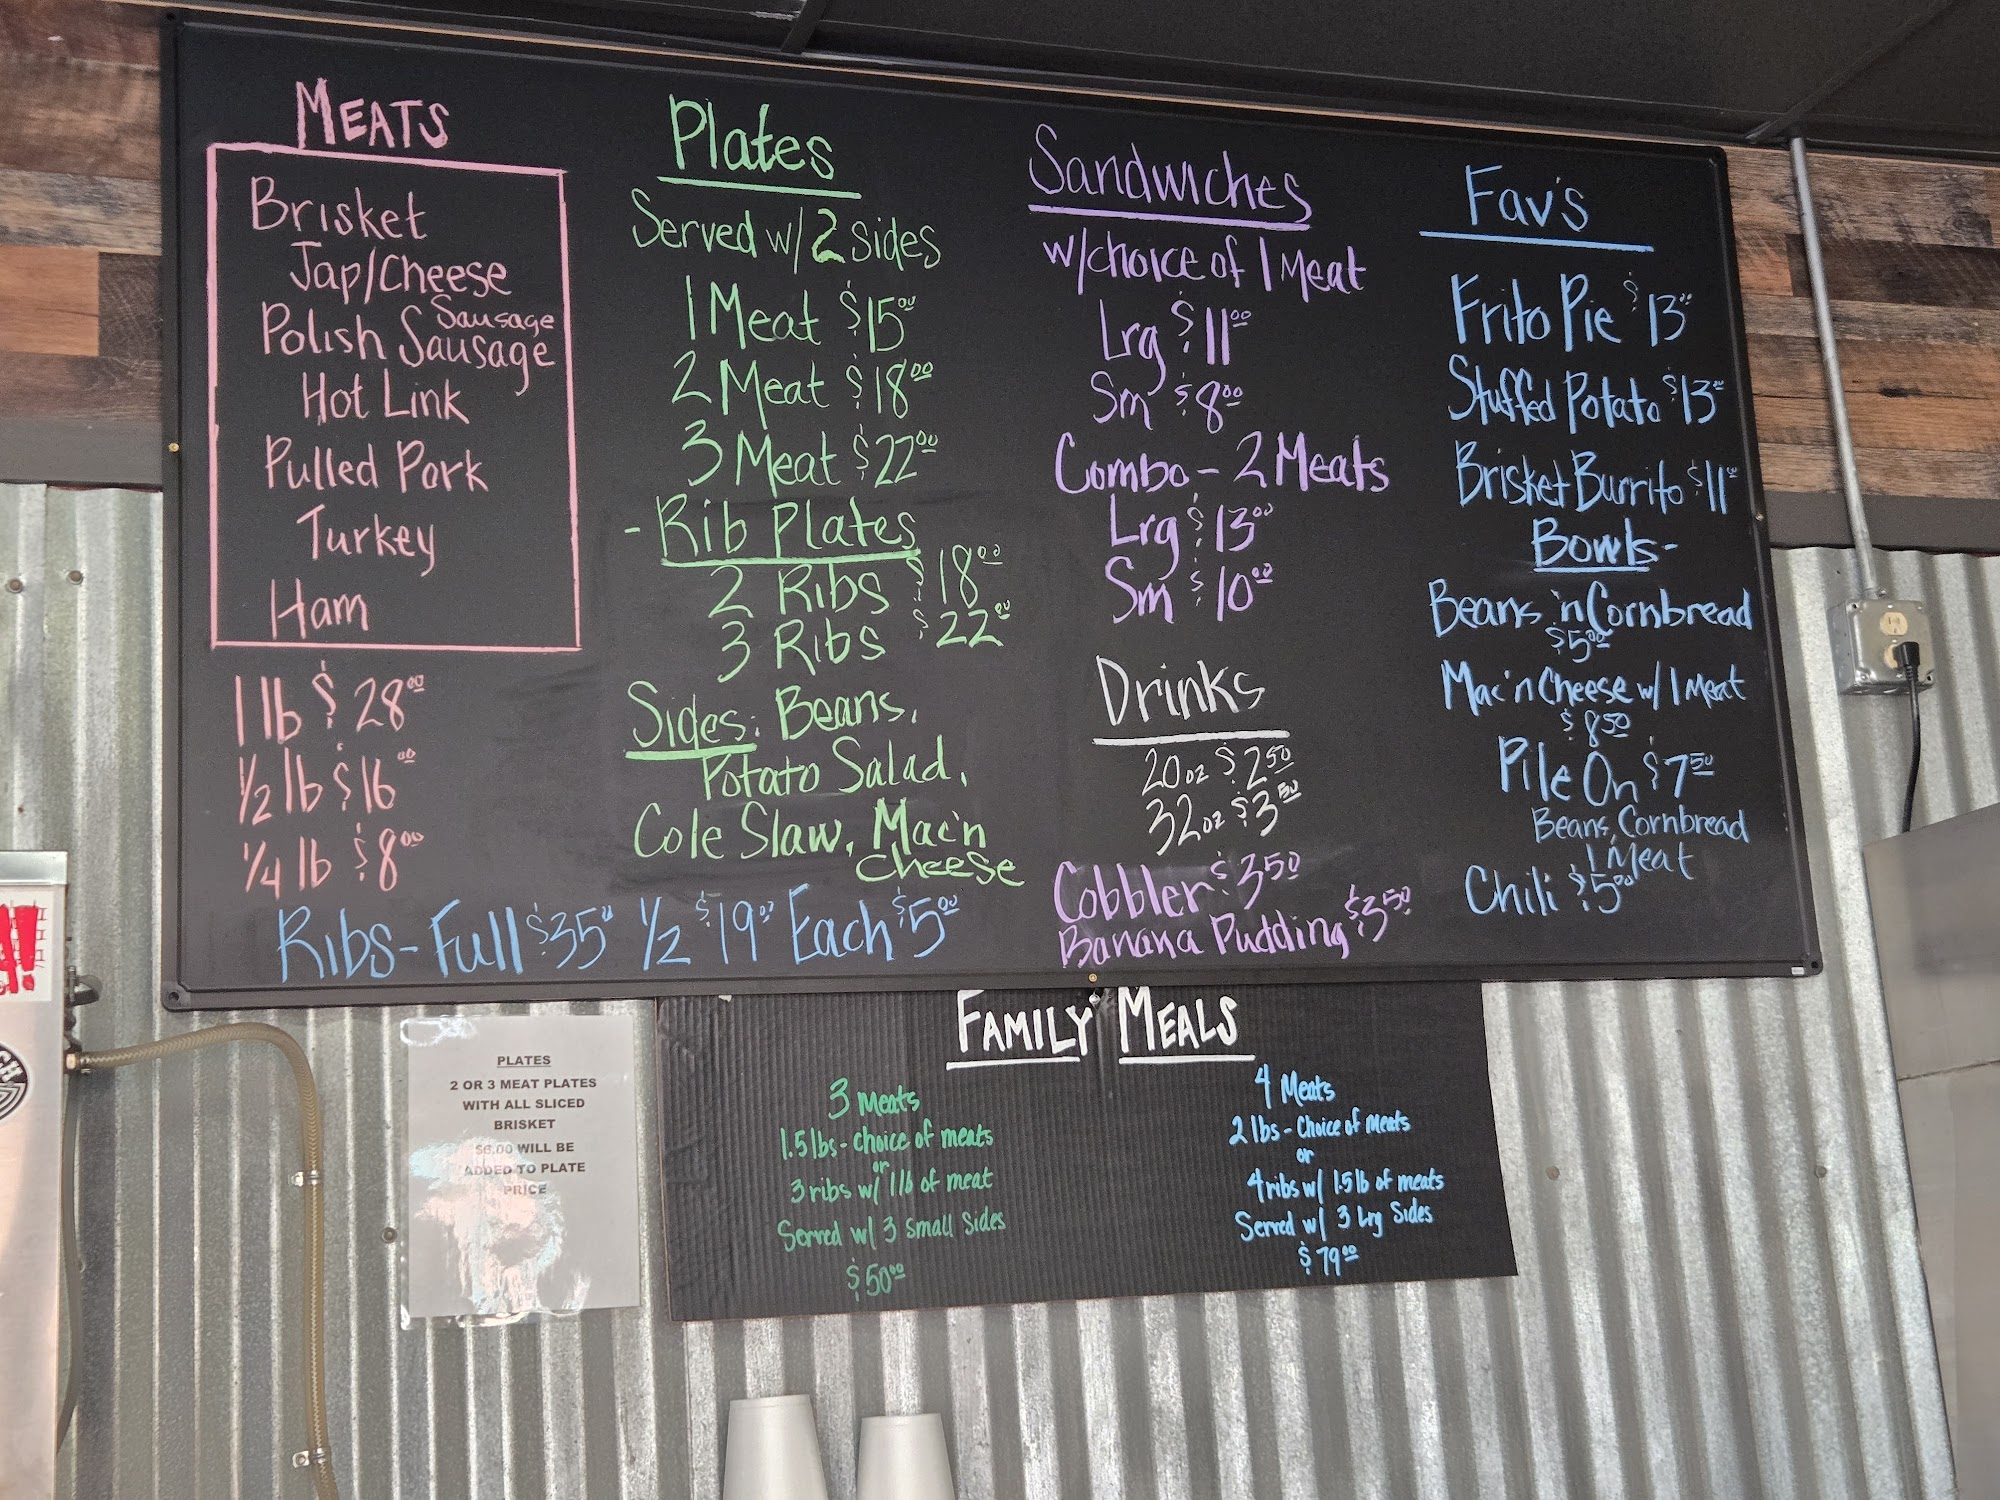 MEATS
Brisket
Jap/Cheese
Sausage
Polish Sausage
Hot Link
Pulled Pork
Turkey
Ham
1 lb $28.00
1/2 lb $16.00
1/4 lb $8.00
Ribs - Full $35.00 1/2 $19.00 Each $5.00
Plates
Served w/ 2 sides
1 Meat $15.00
2 Meat $18.00
3 Meat $22.00
- Rib Plates
2 Ribs $18.00
3 Ribs $22.00
Sides: Beans,
Potato Salad,
Cole Slaw, Mac'n
Cheese
Sandwiches
w/choice of 1 Meat
Lrg $11.00
Sm $8.00
Combo - 2 Meats
Lrg $13.00
Sm $10.00
Drinks
20oz $2.50
32oz $3.50
Cobbler $3.50
Banana Pudding $3.50
Fav's
Frito Pie $13.00
Stuffed Potato $13.00
Brisket Burrito $11.00
Bowls -
Beans 'n Cornbread
$5.00
Mac'n Cheese w/ 1 Meat
$8.50
Pile On $7.50
Beans, Cornbread
1 Meat
Chili $5.00
PLATES
2 OR 3 MEAT PLATES
WITH ALL SLICED
BRISKET
$6.00 WILL BE
ADDED TO PLATE
PRICE
FAMILY MEALS
3 Meats
1.5 lbs - choice of meats
or
3 ribs w/ 1 lb of meat
Served w/ 3 small Sides
$50.00
4 Meats
2 lbs - Choice of Meats
or
4 ribs w/ 1.5 lb of meats
Served w/ 3 Lrg Sides
$79.00